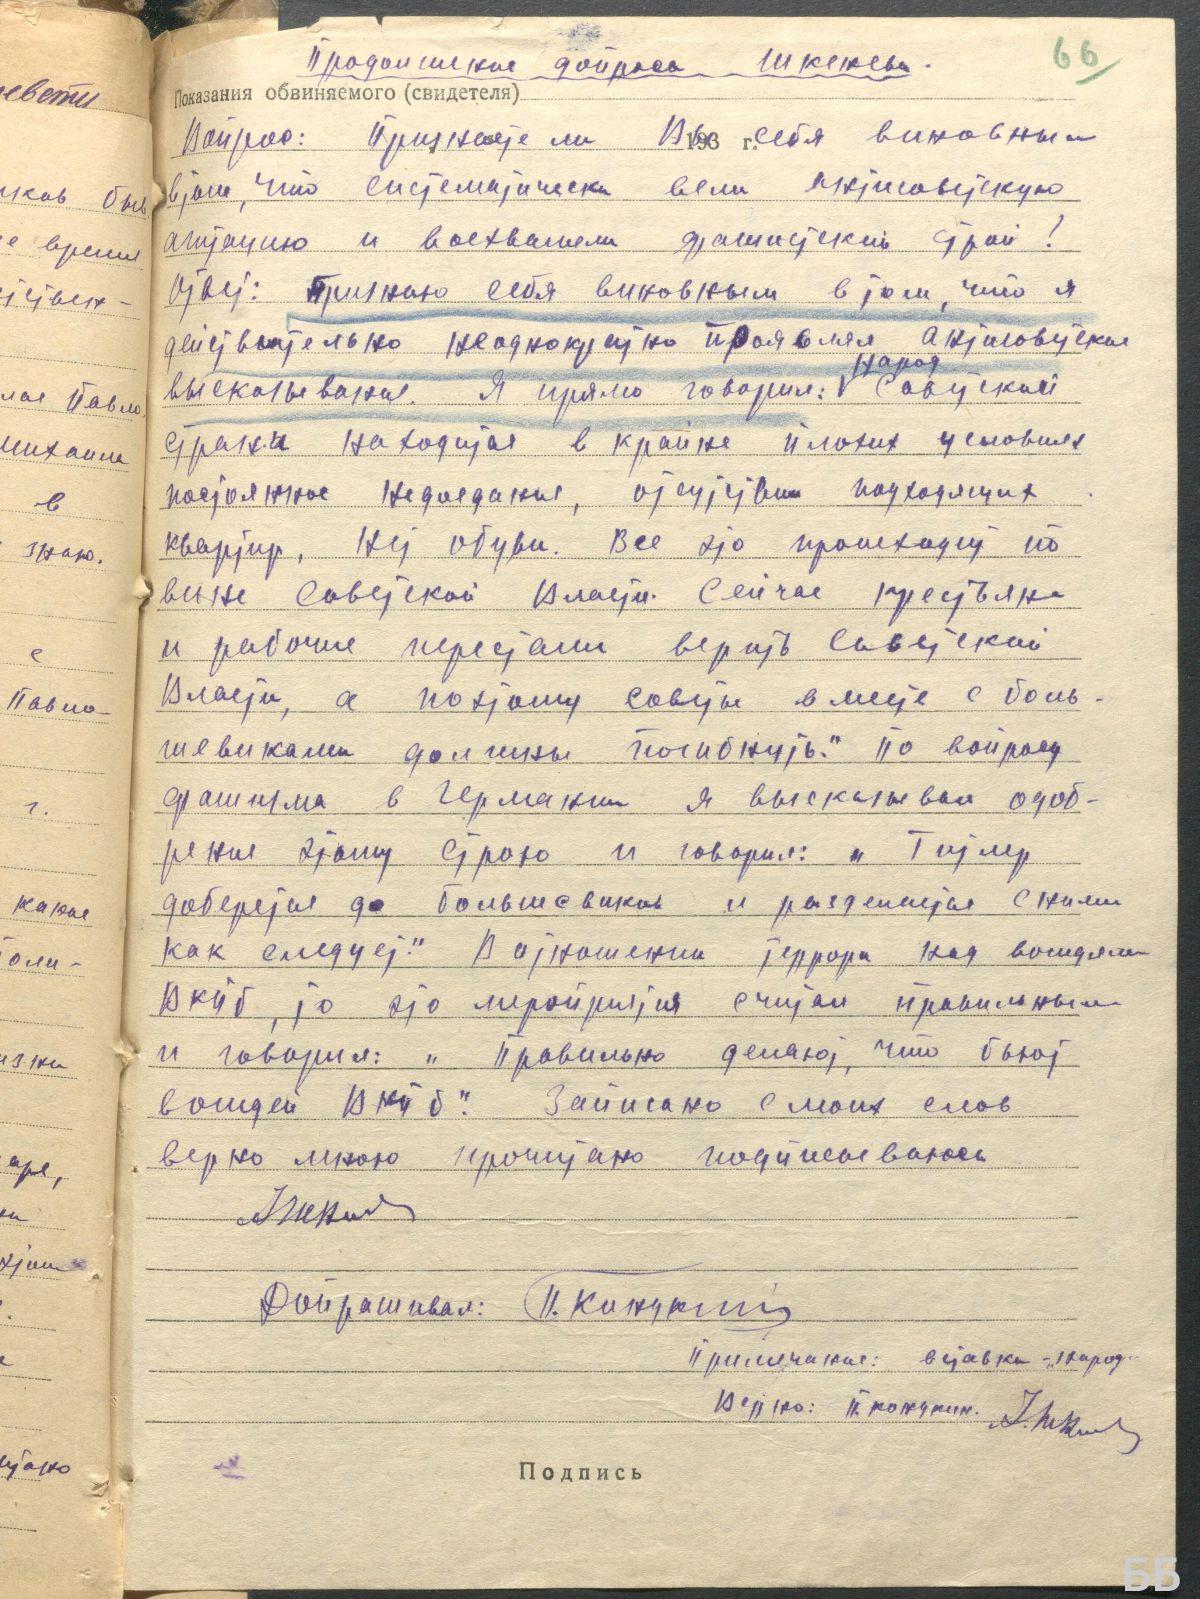 66
Продолжение допроса Шкенева.
Показания обвиняемого (свидетеля)
193 г.
Вопрос: Признаете ли Вы себя виновным
втом, что систематически вели антисоветскую
агитацию и восхваляли фашистский строй!
Ответ: Признаю себя виновным в том, что я
действительно неоднократно проявлял антисоветские
высказывания. Я прямо говорил: народ Советской
страны находится в крайне плохих условиях
постоянное недоедание, отсутствии подходящих
квартир, нет обуви. Все это происходит по
вине Советской Власти. Сейчас крестьяне
и рабочие перестали верить Советской
Власти, а поэтому советы вместе с боль-
шевиками должны погибнуть." По вопросу
фашизма в Германии я высказывал одоб-
рение этому строю и говорил: „Гитлер
доберется до большевиков и разделается с ними
как следует." В отношении террора над вождями
ВКПб, то это мероприятия считал правильным
и говорил: „Правильно делают, что бьют
вождей ВКПб". Записано с моих слов
верно мною прочитано подписываюсь
Допрашивал:
Примечание: вставка-„народ-
Верно:
Подпись
ББ